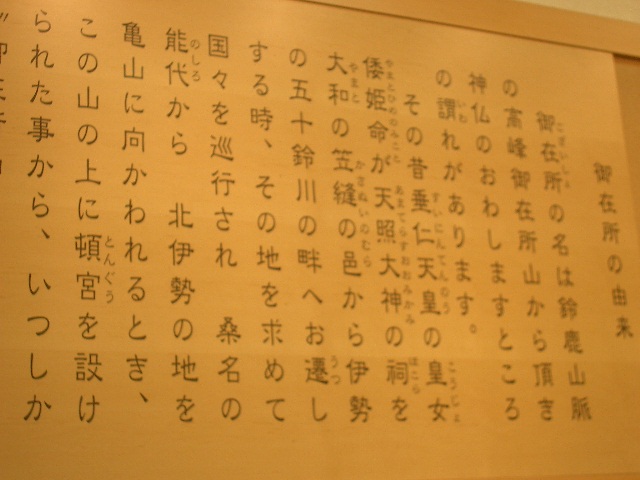 御在所の由来
御在所の名は鈴鹿山脈
の高峰御在所山から頂き
神仏のおわしますところ
の謂れがあります。
その昔垂仁天皇の皇女
倭姫命が天照大神の祠を
大和の笠縫の邑から伊勢
の五十鈴川の畔へお遷し
する時、その地を求めて
国々を巡行され 桑名の
能代から 北伊勢の地を
亀山に向かわれるとき、
この山の上に頓宮を設け
られた事から、いつしか